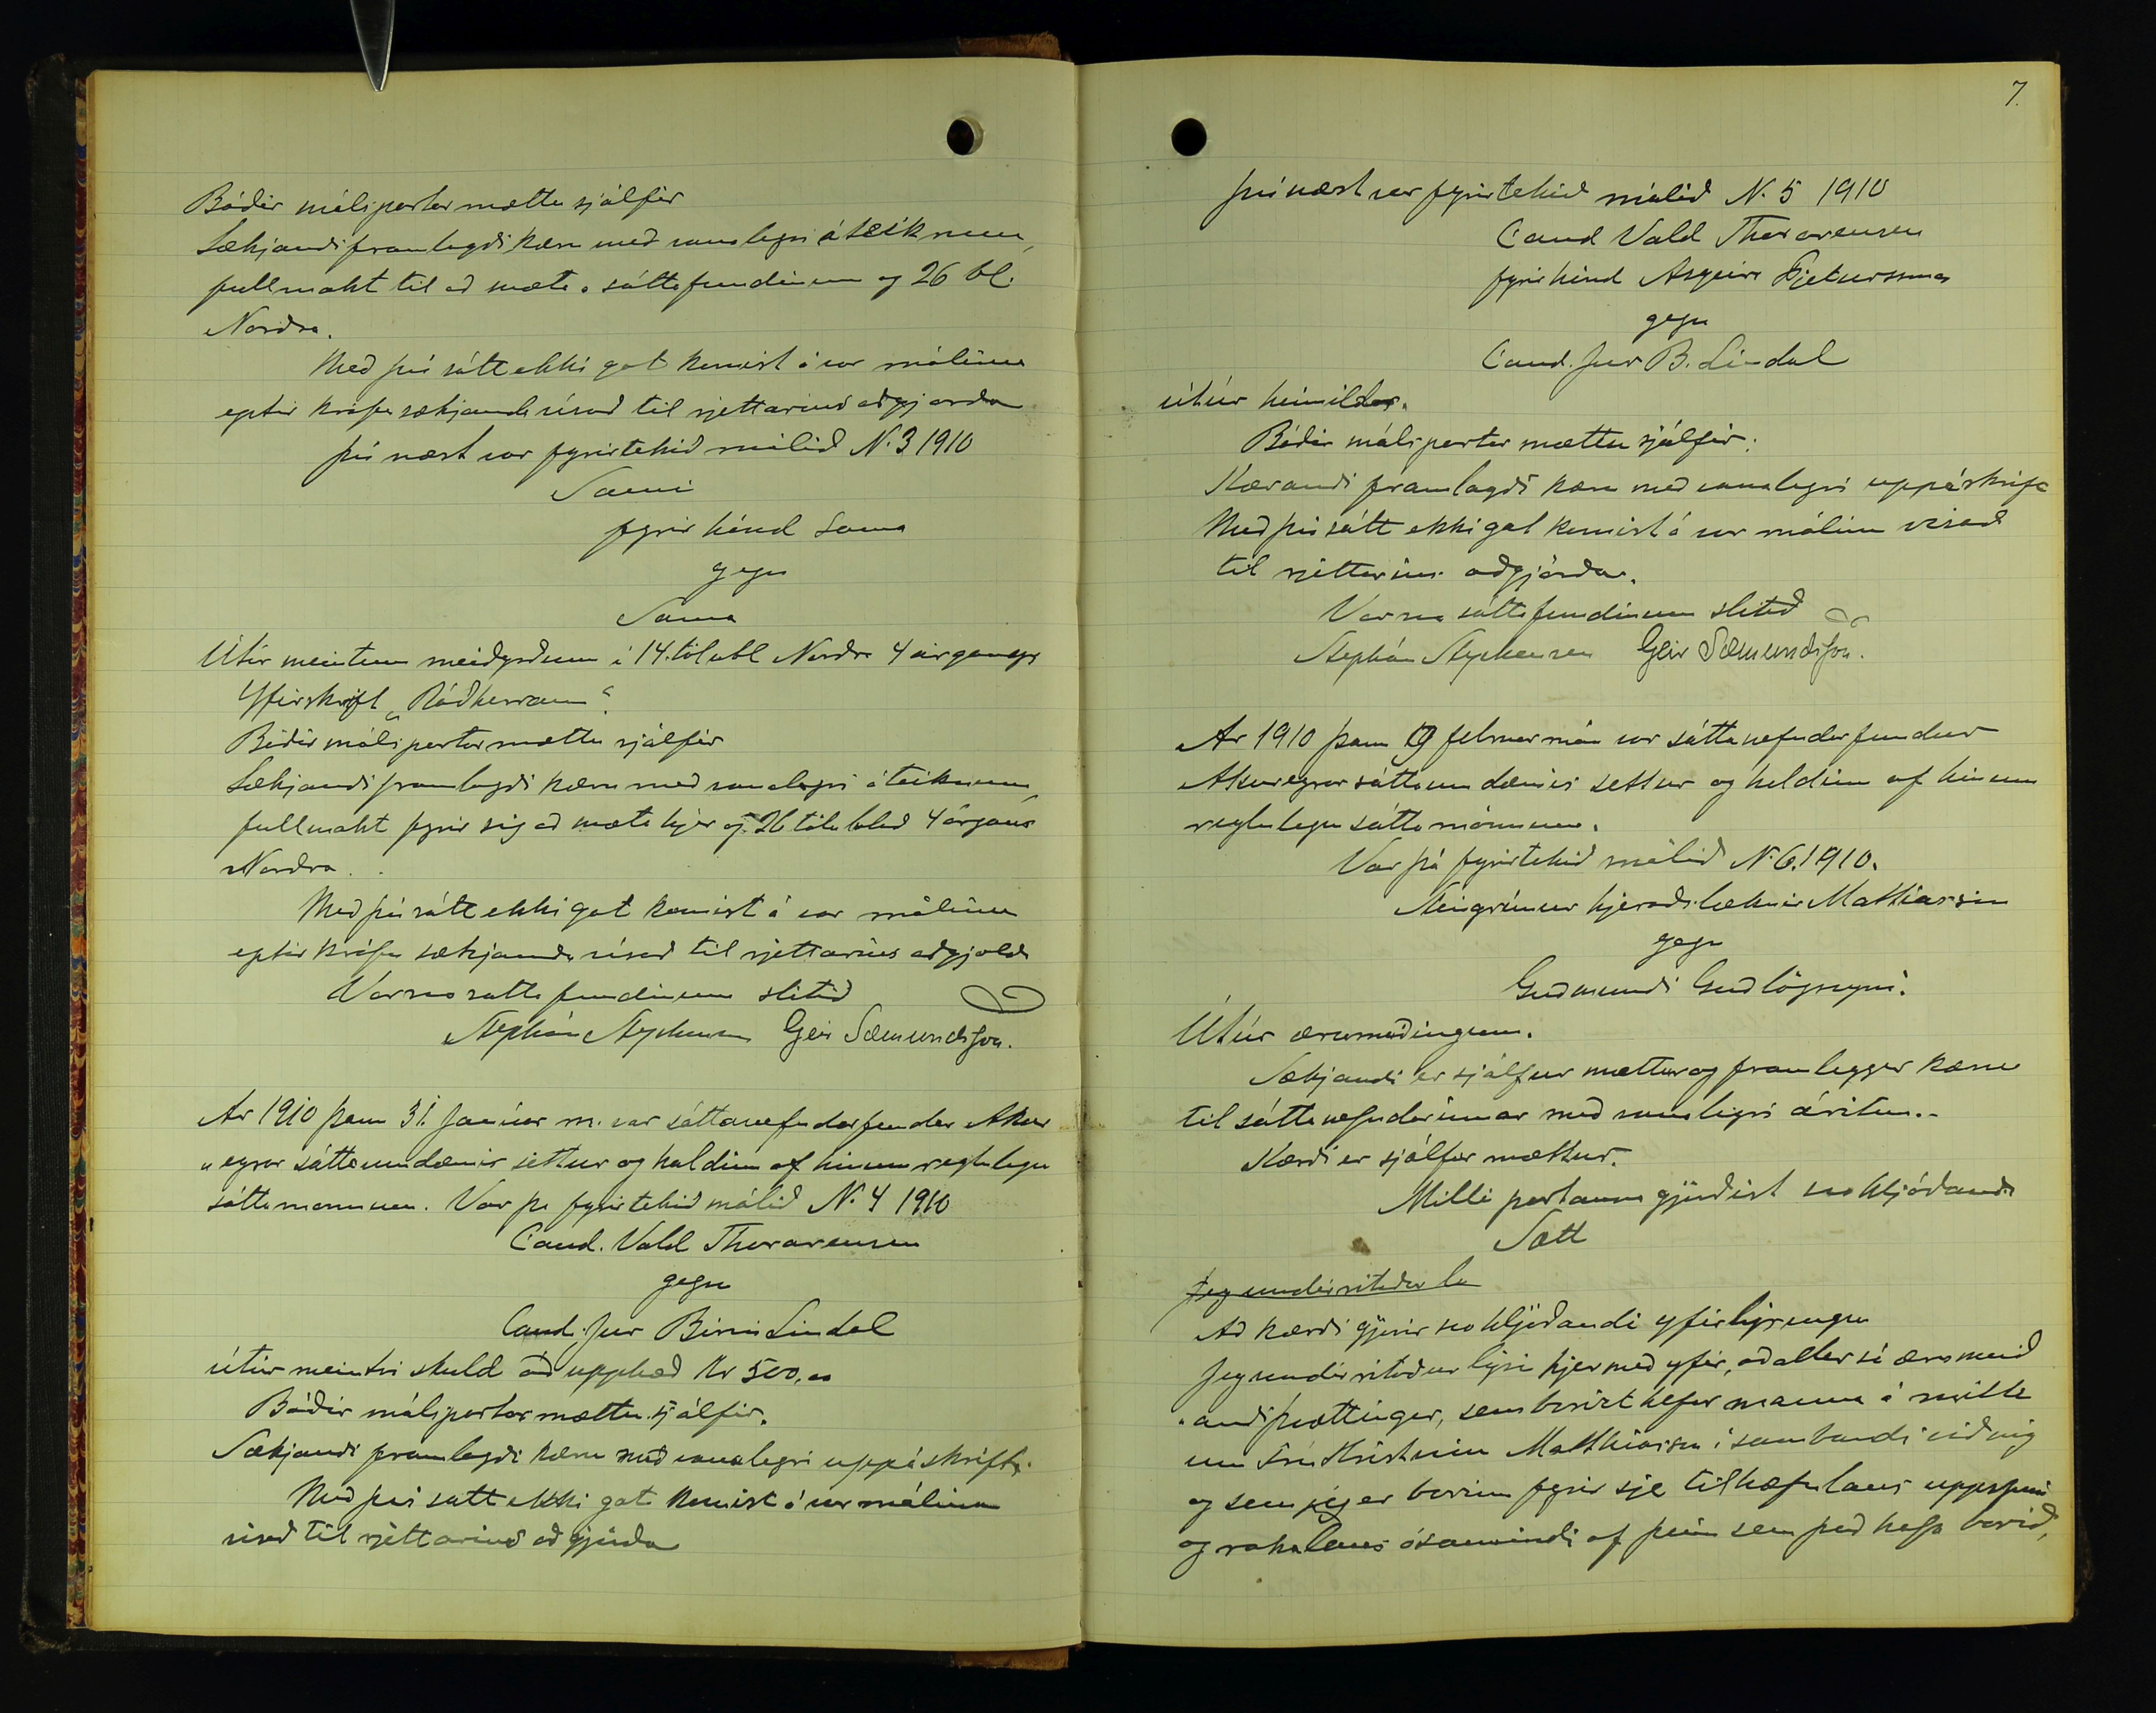 Báðir málspartar mættu sjálfir
Sækjandi framlagði kæru með vanalegri áteiknun,
fullmakt til að mæta á sáttafundinum og 26 bl.
Norðra.
Með því sátt ekki gat komist á var málinu
eptir kröfu sækjanda vísað til rjettarins aðgjörða
Því næst var fyrirtekið málið N. 3 1910
Sami
fyrir hönd sama
gegn
Sama
Útúr meintum meiðyrðum í 14. tölubl Norðra 4 árgangs
Yfirskrift „Ráðherrann“
Báðir málspartar mættu sjálfir
Sækjandi framlagði kæru með vanalegri áteiknun,
fullmakt fyrir sig að mæta hjer og 26 tölublað 4 árgans
Norðra.
Með því sátt ekki gat komist á var málinu
eptir kröfu sækjanda vísað til rjettarins aðgjolda
Var svo sáttafundinum slitið
Stephán Stephensen Geir Sæmundsson.
Ár 1910 þann 31. Janúar m. var sáttanefndarfundur Akur
„eyrar sáttaumdæmis settur og haldinn af hinum reglulegu
sáttamönnum. Var þá fyrirtekið málið N. 4 1910
Cand. Vald Thorarensen
gegn
Cand. jur Birni Lindal
útúr meintri skuld að upphæð Kr 500,00
Báðir málspartar mættu sjálfir.
Sækjandi framlagði kæru með vanalegri uppáskrift.
Með því sátt ekki gat komist á var málinu
vísað til rjettarins aðgjörða
7.
Því næst var fyrirtekið málið N. 5 1910
Cand Vald Thorarensen
fyrir hönd Asgeirs Pjeturssonar
gegn
Cand. jur B. Lindal
útúr heimildar.
Báðir málspartar mættu sjálfir.
Kærandi framlagði kæru með vanalegri uppáskrift
Með því sátt ekki gat komist á var málinu vísað
til rjettarins aðgjörðar.
Var svo sáttafundinum slitið
Stephán Stephensen Geir Sæmundsson.
Ár 1910 þann 9 februar mán var sáttanefndarfundur
Akureyrar sáttaumdæmis settur og haldinn af hinum
reglulegu sáttamönnum.
Var þá fyrirtekið málið N. 6. 1910.
Steingrímur hjeraðslæknir Matthíasson
gegn
Guðmundi Guðlögssyni.
Útúr ærumeiðingum.
Sækjandi er sjálfur mættur og framleggur kæru
til sáttanefndarinnar með vanalegri áritun.-
Kærði er sjálfur mættur.
Milli partanna gjörðist svohljóðandi
Sátt
Jeg undirritaður le
Að kærði gjörir svohljóðandi yfirlýsingu
Jeg undirritaður lýsi hjer með yfir, að allur sá ærumeið
„andi þvættingur, sem borist hefur manna á milli
um frú Kristínu Matthíasson í sambandi við mig
og sem jeg er borinn fyrir sje tilhæfulaus uppspuni
og rakalaus ósannindi af þeim sem það hafa borið,